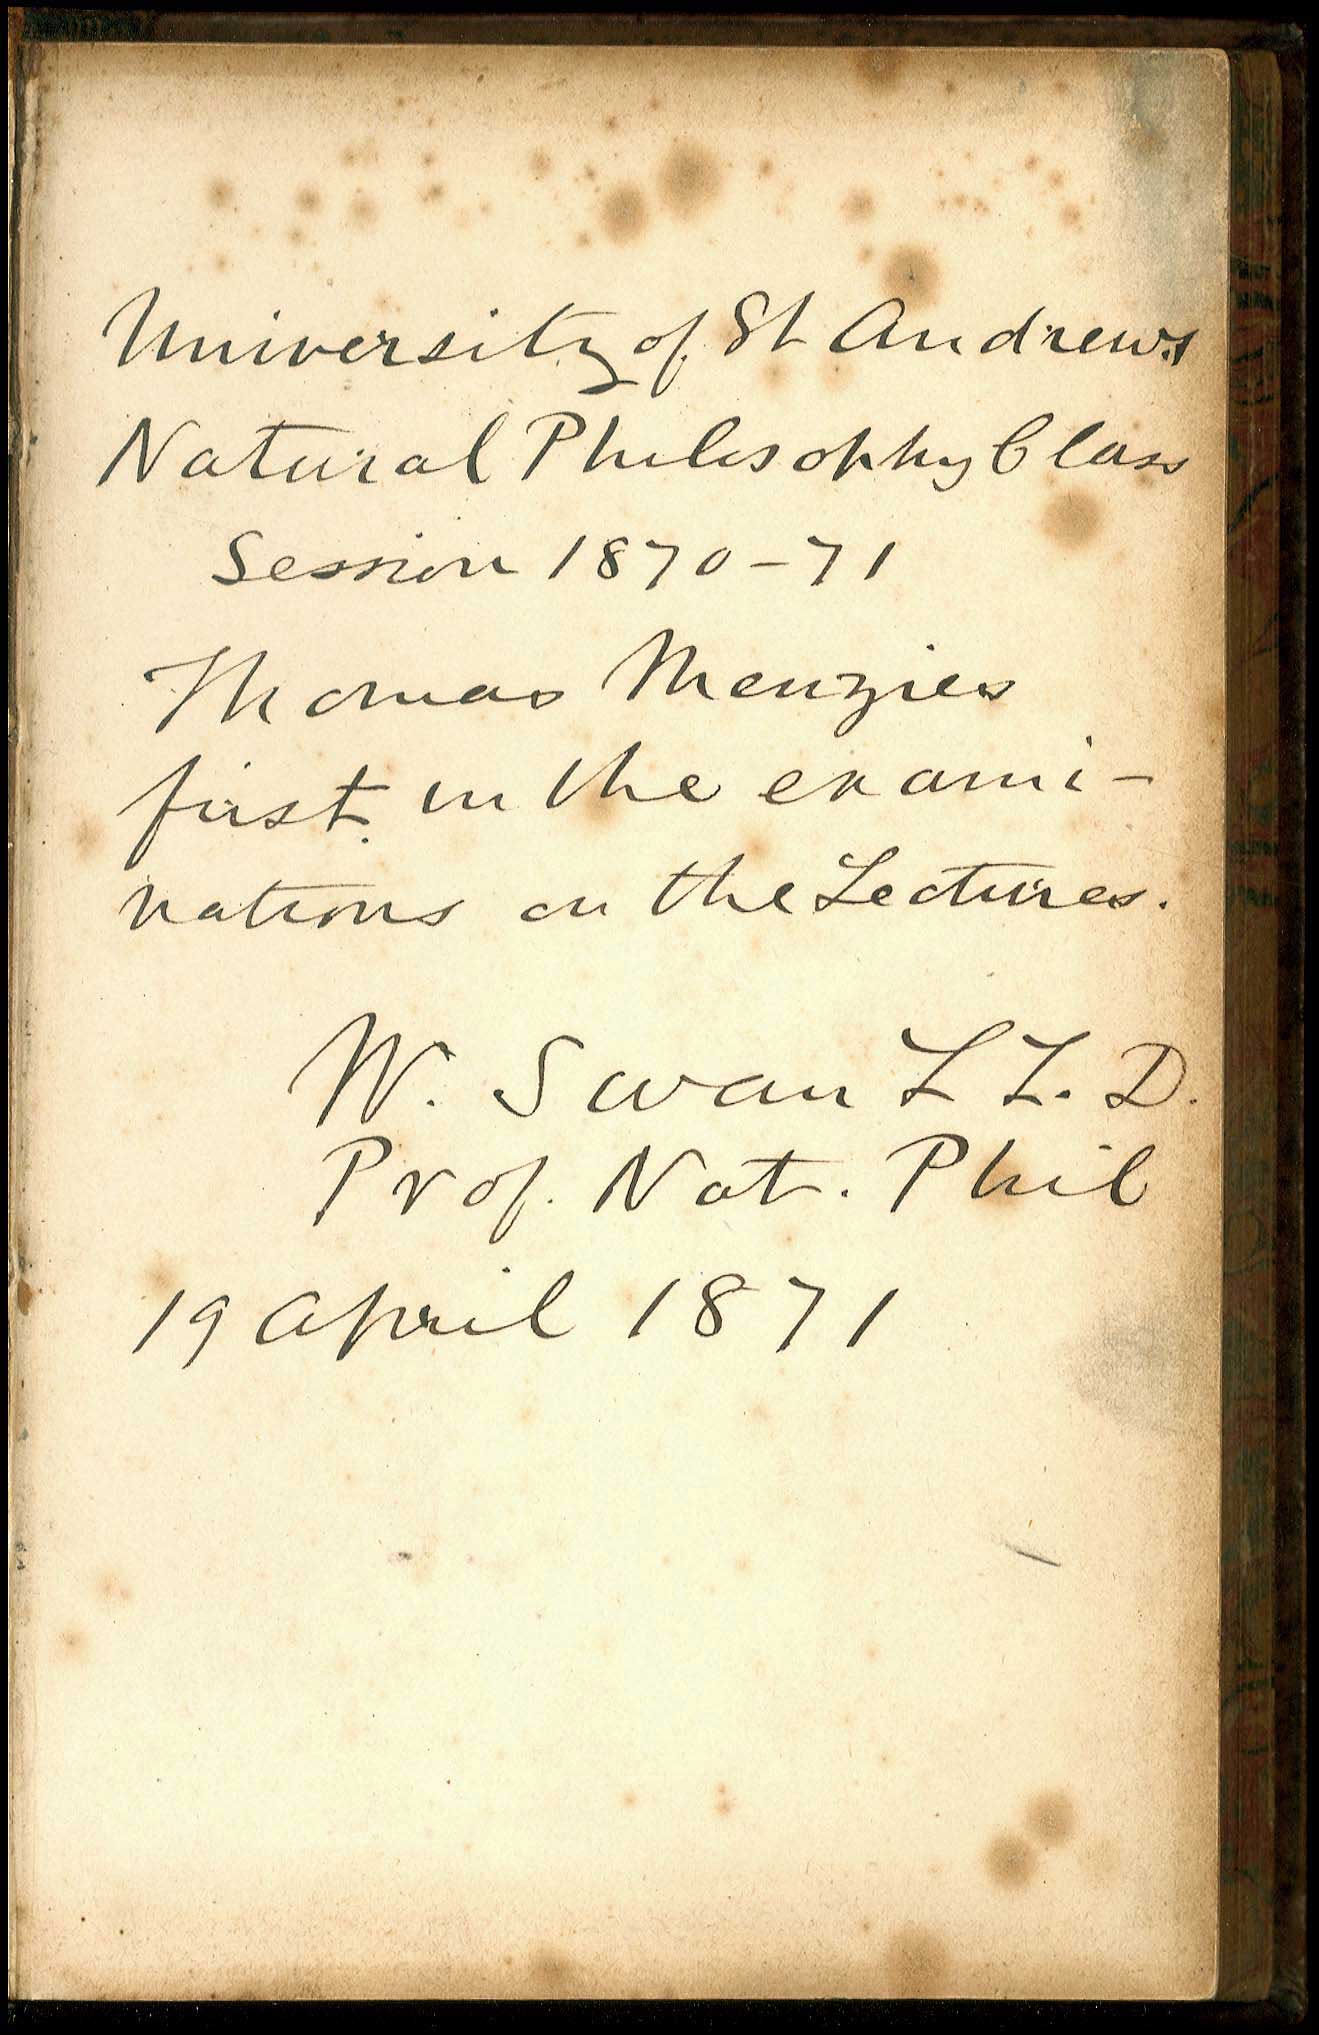 University of St Andrews
Natural Philosophy Class
Session 1870-71
Thomas Menzies
first in the exami-
nations on the Lectures.
W. Swan LL.D.
Prof. Nat. Phil
19 April 1871